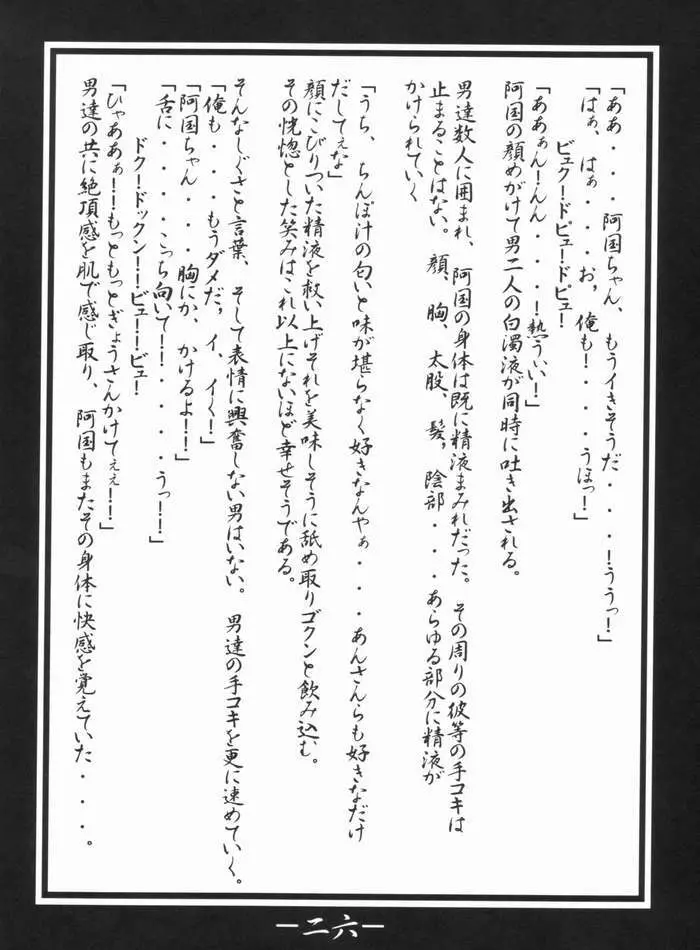 「ああ・・・阿国ちゃん、もうイきそうだ・・・！ううっ！」
「はぁ、はぁ・・・お，俺も！・・・・うほっ！」
ビュク！ドビュー！ドピュ！
「ああぁん！んん・・・！熱ういぃ！」
阿国の顔めがけて男二人の白濁液が同時に吐き出される。
男達数人に囲まれ、阿国の身体は既に精液まみれだった。その周りの彼等の手コキは
止まることはない。顔，胸，太股，髪，陰部・・・あらゆる部分に精液が
かけられていく
「うち、ちんぽ汁の匂いと味が堪らなく好きなんやぁ・・・あんさんらも好きなだけ
だしてぇな」
顔にこびりついた精液を救い上げそれを美味しそうに舐め取りゴクンと飲み込む。
その恍惚とした笑みはこれ以上にないほど幸せそうである。
そんなしぐさと言葉、そして表情に興奮しない男はいない。男達の手コキを更に速めていく。
「俺も・・・もうダメだ，イ，イく！」
「阿国ちゃん・・・胸にか、かけるよ！！」
「舌に・・・・こっち向いて！！・・・・うっ！！」
ドク！ドックン！！ビュー！！ビュ！
「ひゃああぁ！！もっともっとぎょうさんかけてぇぇ！！」
男達の共に絶頂感を肌で感じ取り、阿国もまたその身体に快感を覚えていた・・・。
―二六―